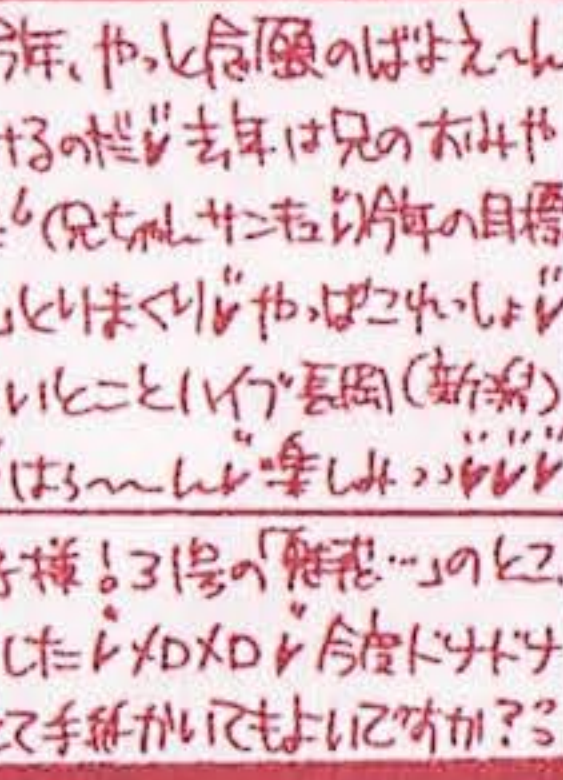 今年、やっと念願のばよえ〜ん
けるのだ!!去年は兄のおみや
(兄ちゃんサンキュ!)今年の目標
とりまくり!!やっぱこれっしょ!!
いとことハイブ長岡(新潟)
はら〜〜ん!!楽しみっっ!!!!!!
子様!3号の「魅惑…」のとこ
した!!メロメロ!!今度ドナドナ
て手紙かいてもよいですか?